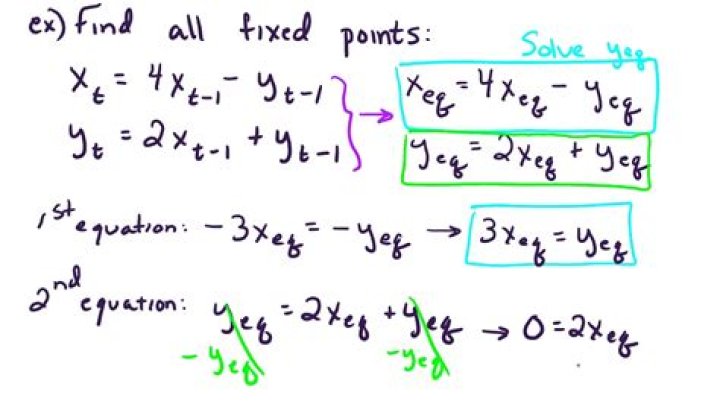 ex) Find all fixed points:
Solve yeq
xₜ = 4xₜ₋₁ - yₜ₋₁ → xeq = 4xeq - yeq
yₜ = 2xₜ₋₁ + yₜ₋₁ yeq = 2xeq + yeq
1st equation: -3xeq = -yeq → 3xeq = yeq
2nd equation: yeq = 2xeq + yeq → 0 = 2xeq
-yeq -yeq